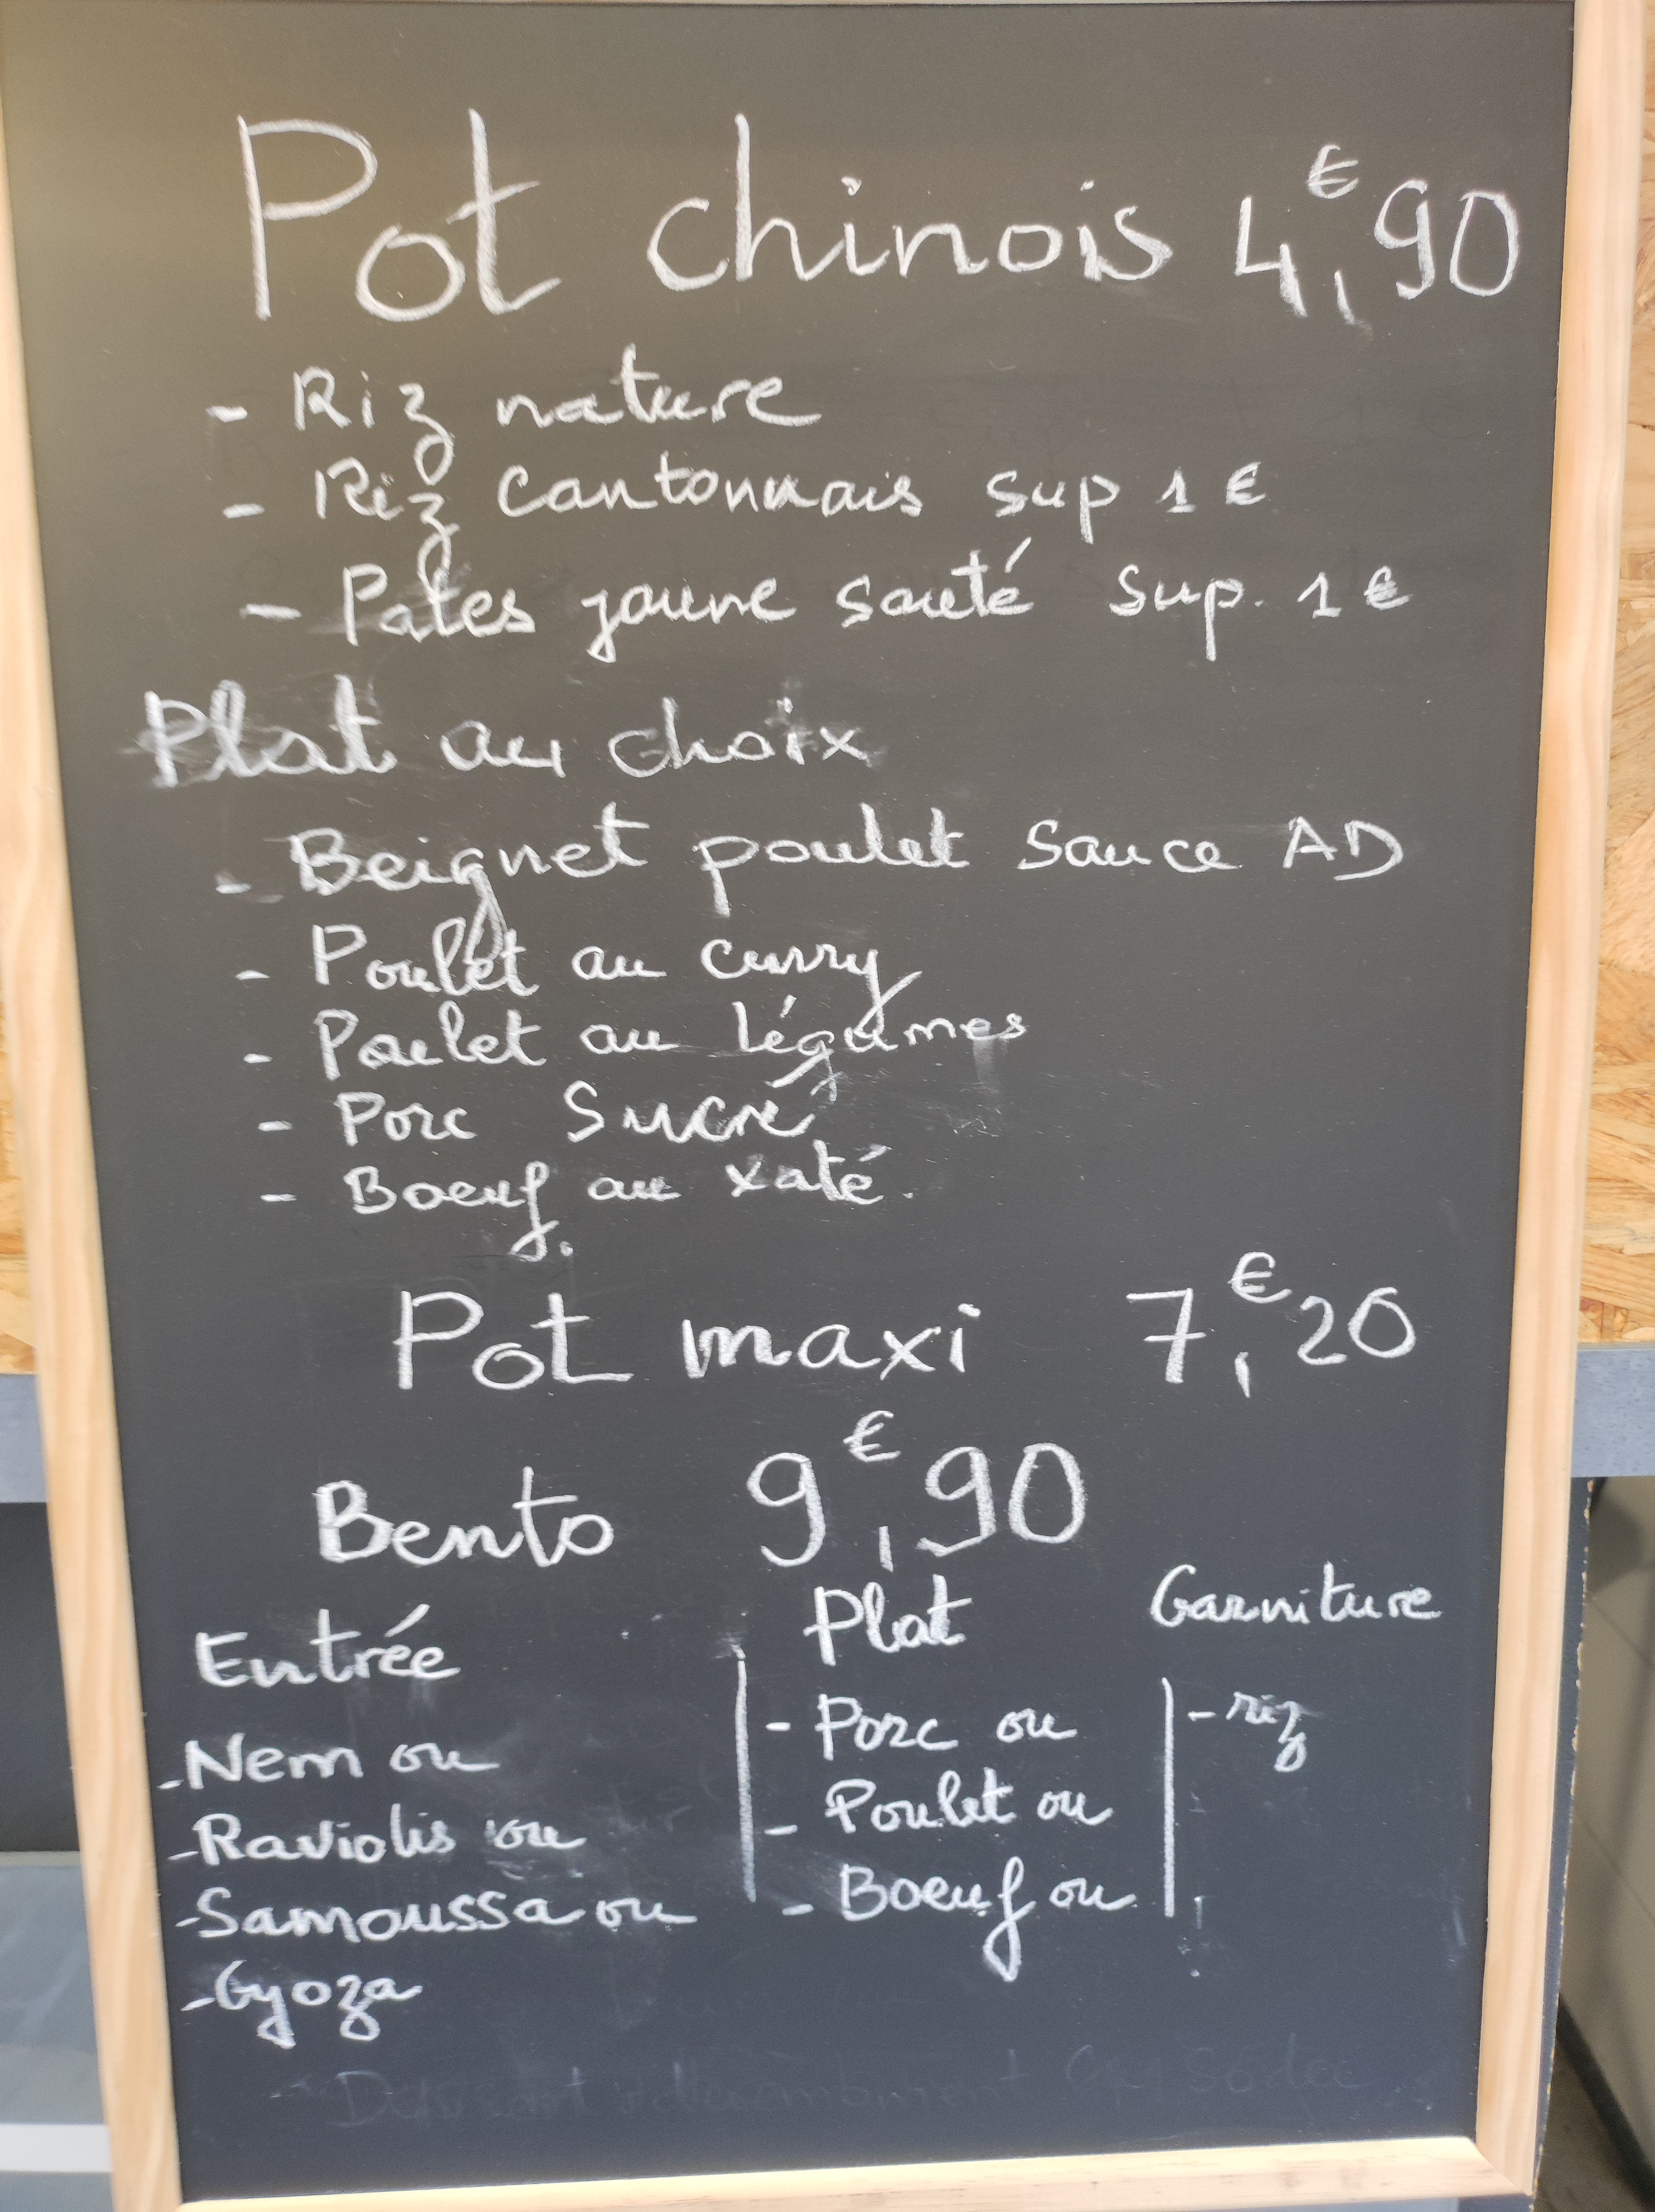 Pot chinois 4,€90
- Riz nature
- Riz cantonnais sup 1 €
- Pates jaune sauté sup. 1 €
Plat au choix
- Beignet poulet sauce AD
- Poulet au curry
- Poulet au légumes
- Porc sucré
- Boeuf au xaté.
Pot maxi 7,€20
Bento 9,€90
Entrée
- Nem ou
- Raviolis ou
- Samoussa ou
- Gyoza
Plat
- Porc ou
- Poulet ou
- Boeuf ou
Garniture
- riz